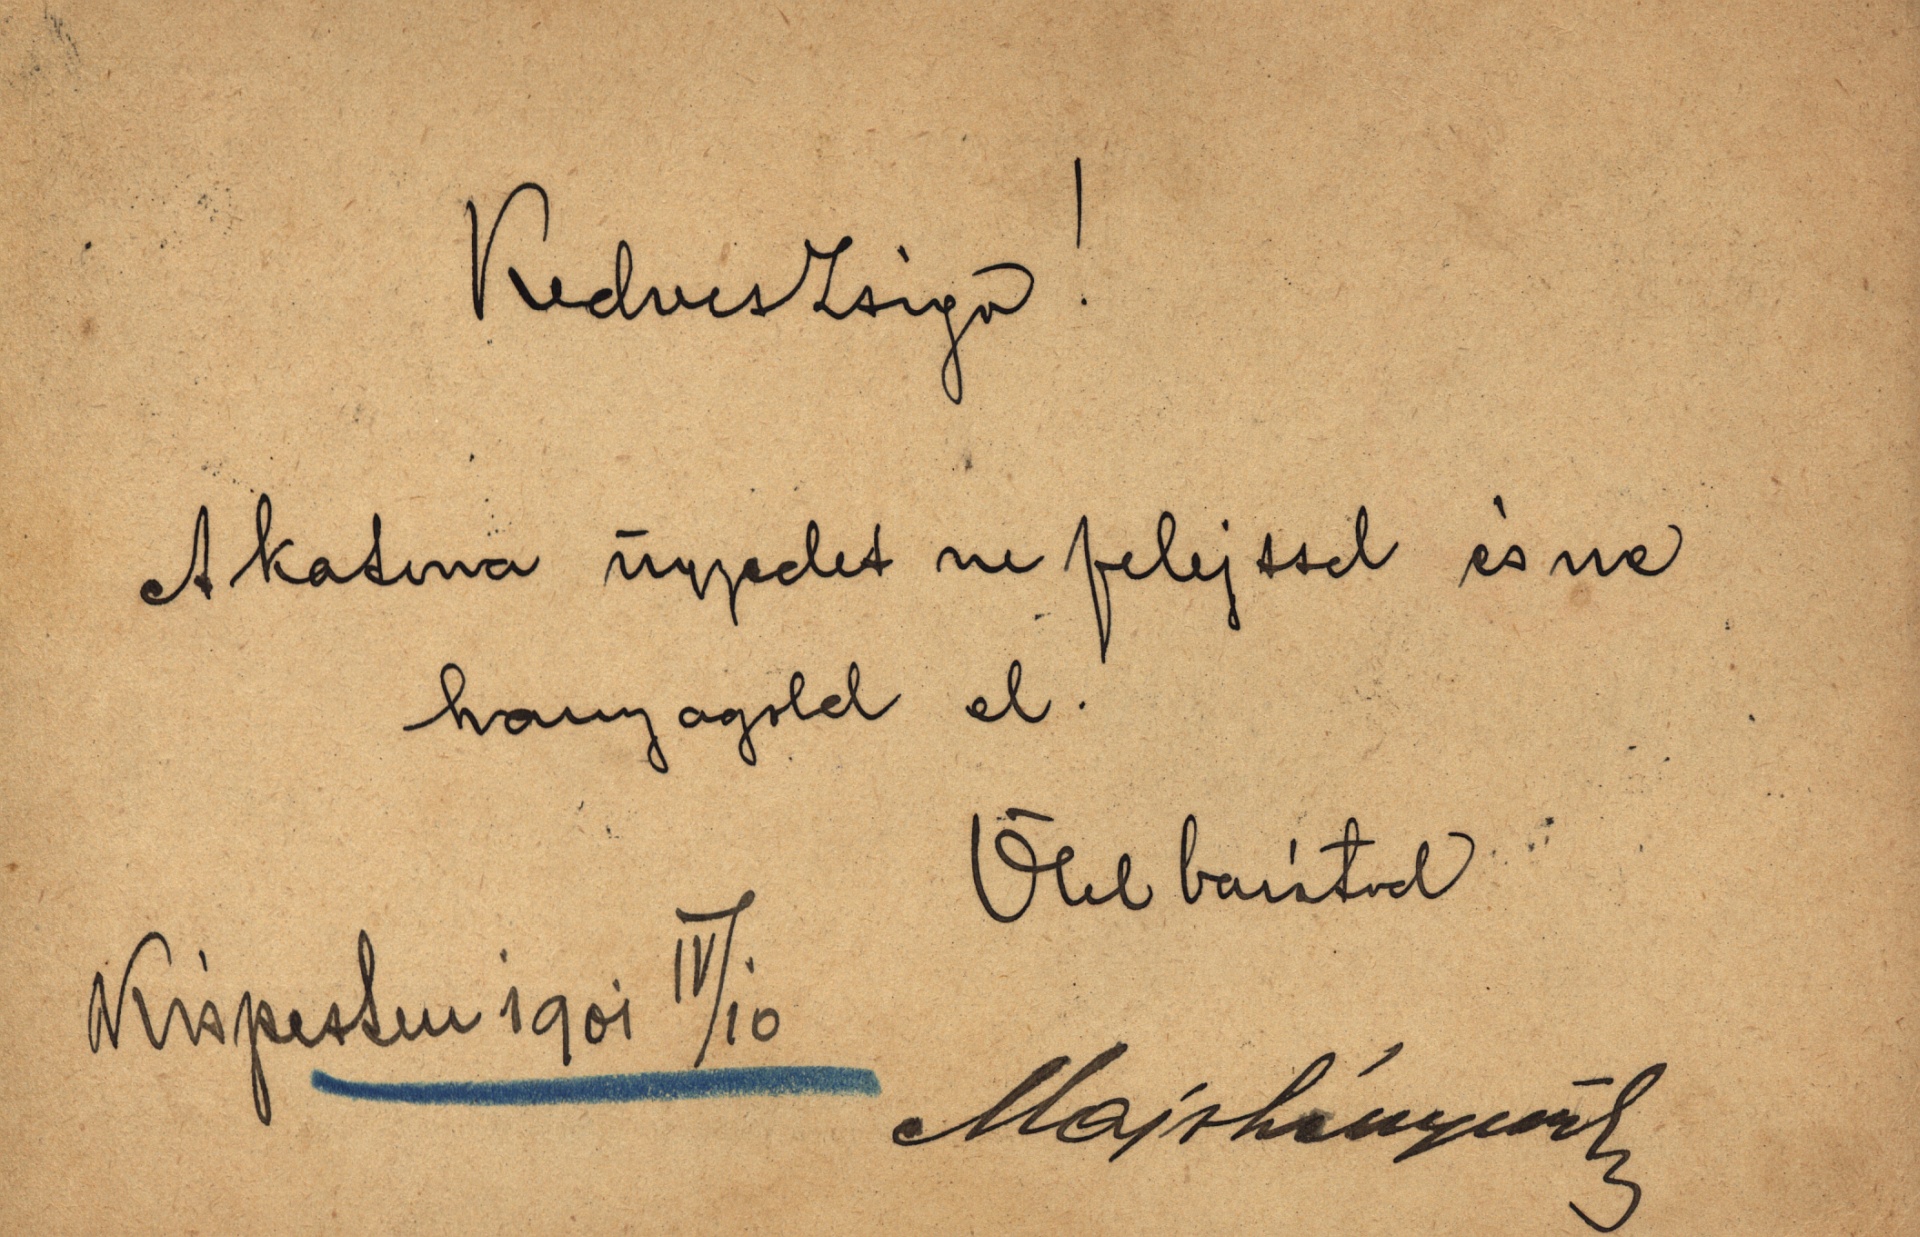 Kedves Zsigó!
A katona ügyedet ne felejtsd és ne
hanyagold el.
Ölel barátod
Kispesten 1901 IV/10